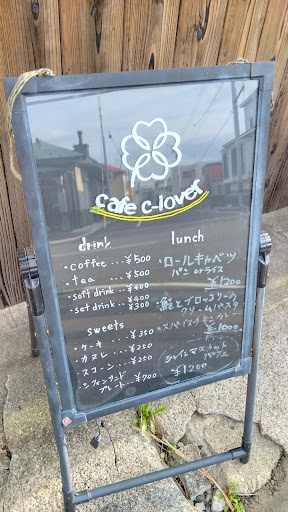 cafe c-lover
drink
・coffee...¥500
・tea...¥500
soft drink..¥400
¥400
set drink..¥300
sweets
・ケーキ...¥350
・カヌレ...¥250
・スコーン...¥250
・シフォンサンド
プレート...¥700
lunch
・ロールキャベツ
パン orライス
¥1200
・鮭とブロッコリーの
クリームパスタ
・スパイスチキンカレー
¥1000
シャインマスカット
パフェ
¥1200